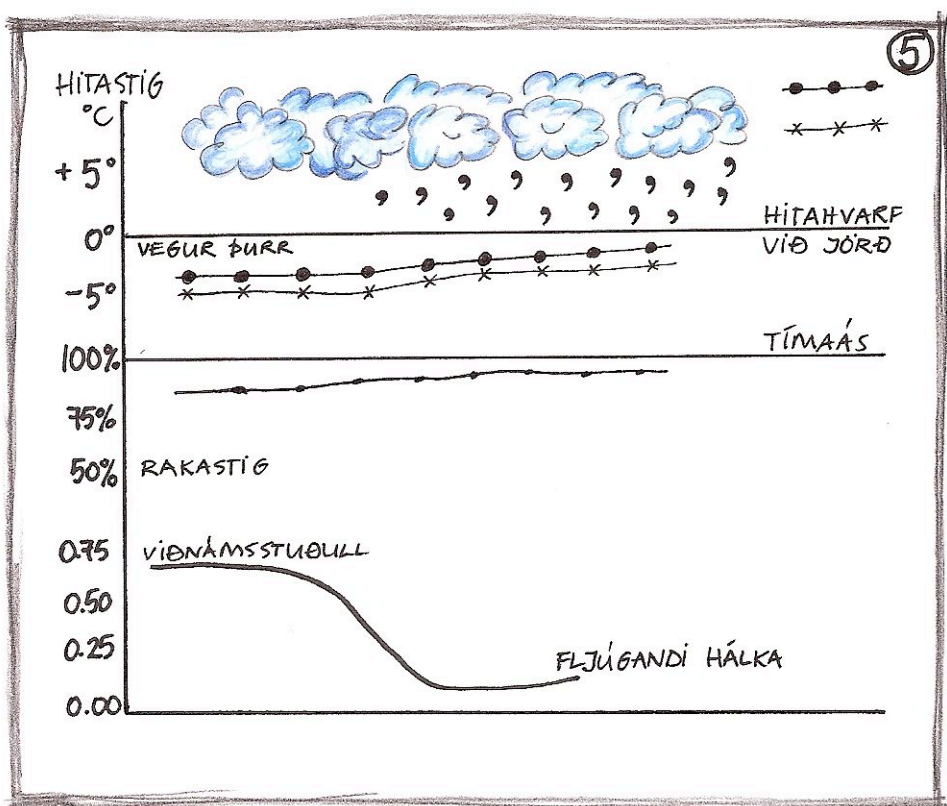 5
HITASTIG
°C
+5°
0°
-5°
HITAHVARF
VIÐ JÖRÐ
VEGUR ÞURR
TÍMAÁS
100%
75%
50%
RAKASTIG
0.75
0.50
0.25
0.00
VIÐNÁMSSTUÐULL
FLJÚGANDI HÁLKA